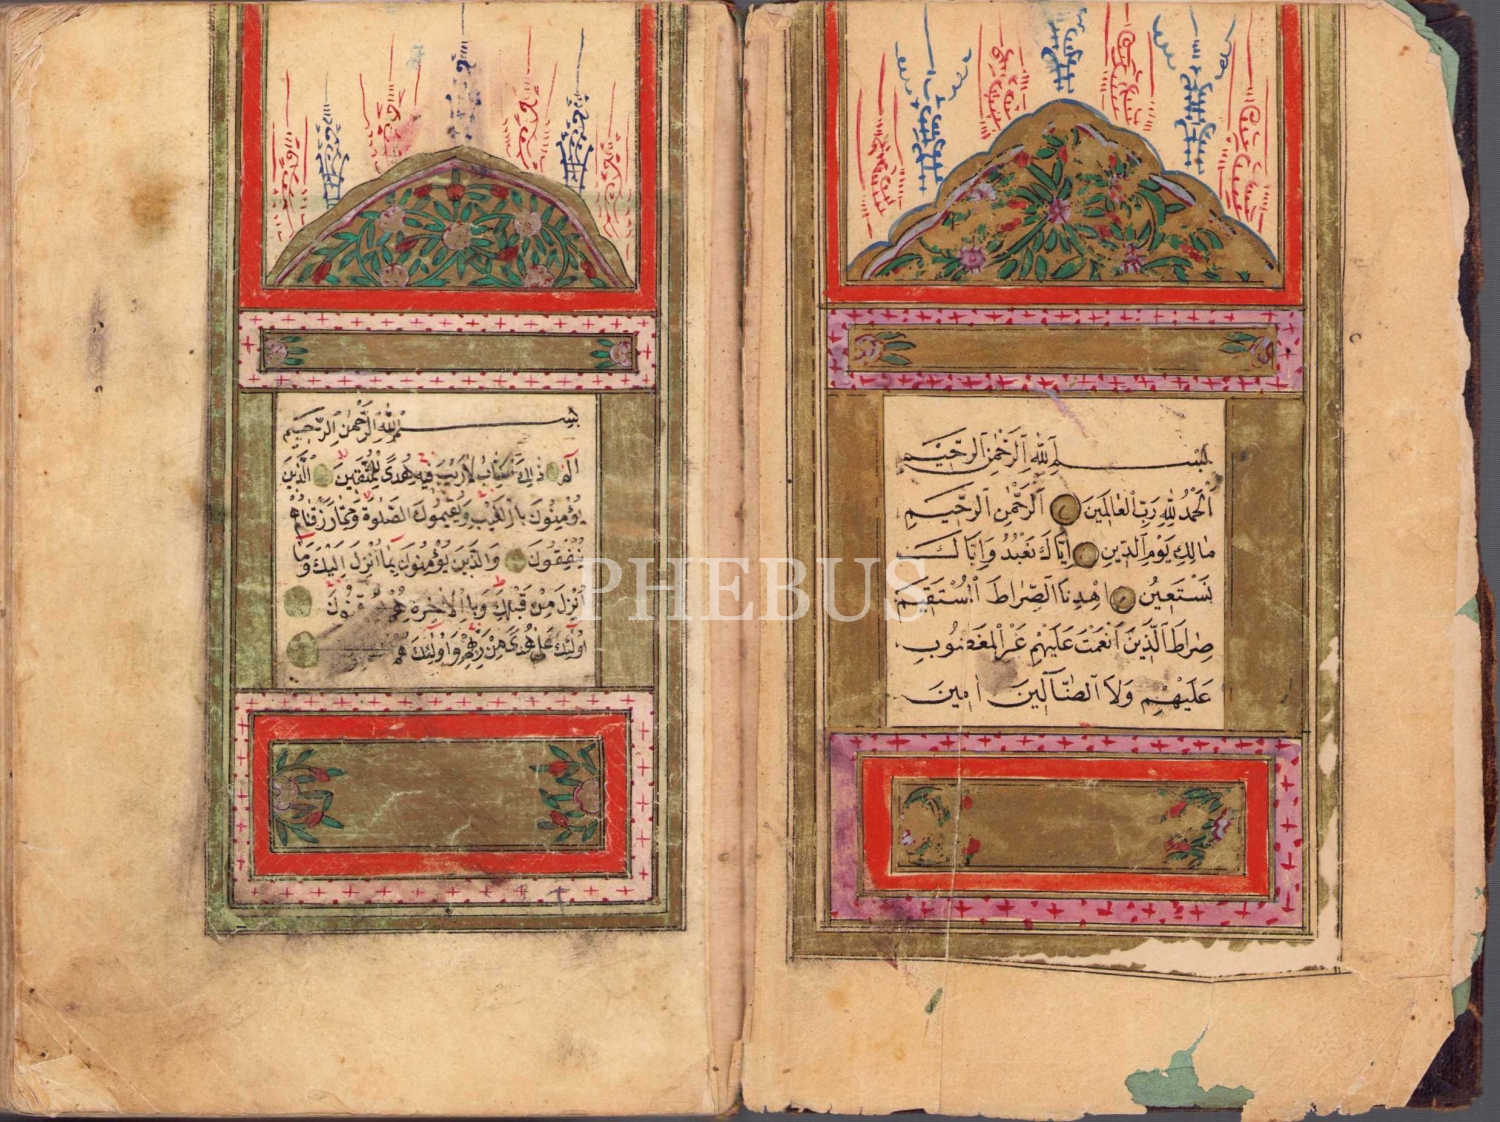 بسم الله الرحمن الرحيم
الحمد لله رب العالمين الرحمن الرحيم
مالك يوم الدين اياك نعبد واياك
نستعين اهدنا الصراط المستقيم
صراط الذين انعمت عليهم غير المغضوب
عليهم ولا الضالين امين
بسم الله الرحمن الرحيم
الم ذلك الكتاب لا ريب فيه هدى للمتقين الذين
يؤمنون بالغيب ويقيمون الصلوة ومما رزقناهم
ينفقون والذين يؤمنون بما انزل اليك وما
انزل من قبلك وبالاخرة هم يوقنون
اولئك على هدى من ربهم واولئك هم
PHEBUS